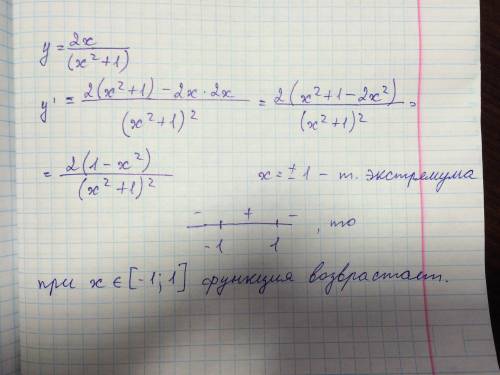 y = 2x / (x² + 1)
y' = 2(x² + 1) - 2x · 2x / (x² + 1)² = 2(x² + 1 - 2x²) / (x² + 1)² =
= 2(1 - x²) / (x² + 1)² x = ± 1 - т. экстремума
- + -
-1 1 , то
при x ∈ [-1; 1] функция возврастает.